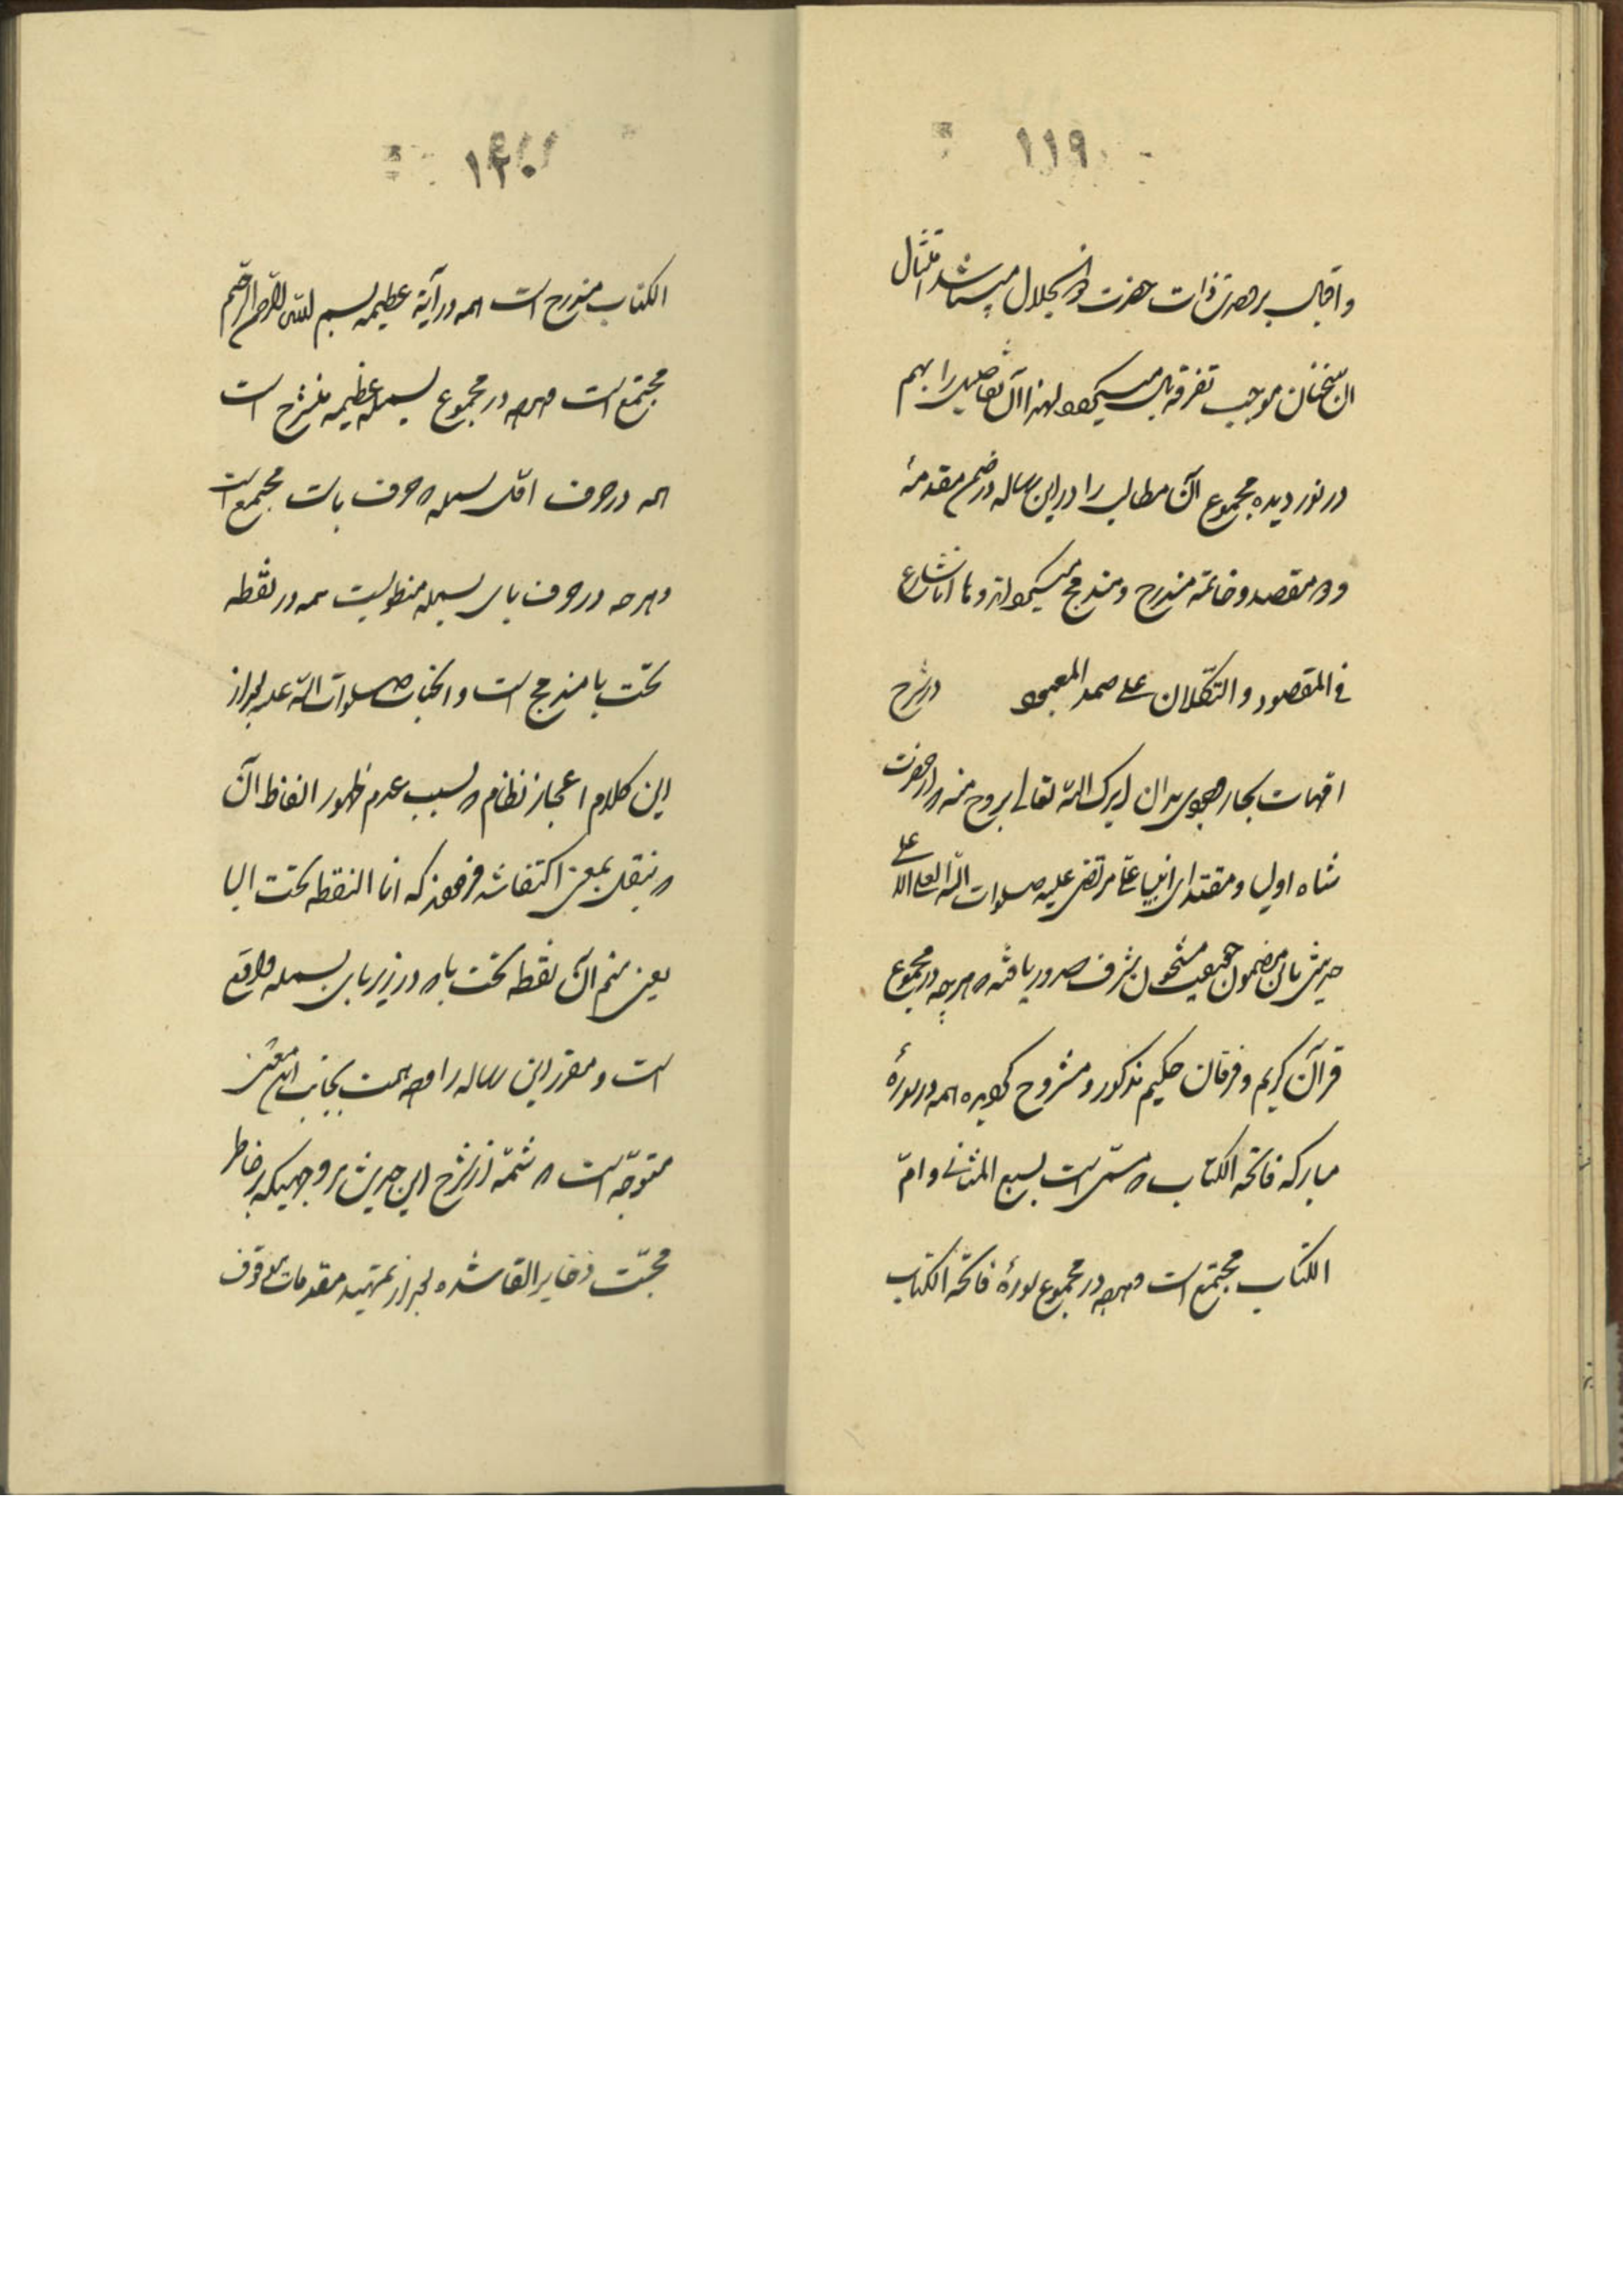 ١١٩
واقبال بر حضرت ذات حضرت ذو الجلال میباشد امثال
این سخنان موجب تفرقه بال میگردد لهذا آن تفاصیل را بهم
در نوردیده مجموع آن مطالب را در این رساله در ضمن مقدمهٔ
و دو مقصد و خاتمه مندرج و مندمج میگرداند و ها انا شارع
فی المقصود و التکلان علی صمد المعبود در شرح
بدان ایدک الله تعالی بروح منه که از حضرت
شاه اولیا و مقتدای انبیا علی مرتضی علیه صلوات الله العلی الاعلی
حدیثی باین مضمون حقیقت مشحون شرف صدور یافته که هرچه در مجموع
قرآن کریم و فرقان حکیم مذکور و مشروح گردیده همه در سورهٔ
مبارکه فاتحه الکتاب که مسمی است بسبع المثانی و امّ
الکتاب مجتمع است و هرچه در مجموع سورهٔ فاتحة الکتاب
١٢٠
الکتاب مندرج است همه در آیة عظیمه بسم الله الرحمن الرحیم
مجتمع است و هرچه در مجموع بسمله عظیمه منشرح است
همه در حرف اوّل بسمله که حرف باست مجتمع است
و هرچه در حرف بای بسمله منطویست همه در نقطه
تحت با مندمج است و آنجناب صلوات الله علیه بعد از
این کلام اعجاز نظام که بسبب عدم ظهور الفاظ آن
که بنقل بمعنی اکتفا شد فرموده که انا النقطه تحت البا
یعنی منم آن نقطه تحت با که در زیر بای بسمله واقع
است و محرر این رساله را همت بجانب این معنی
متوجّه است که شمّهٔ از شرح این حدیث بر وجهیکه بر خاطر
محبّت ذخایر القا شده بعد از تمهید مقدمات موقوف